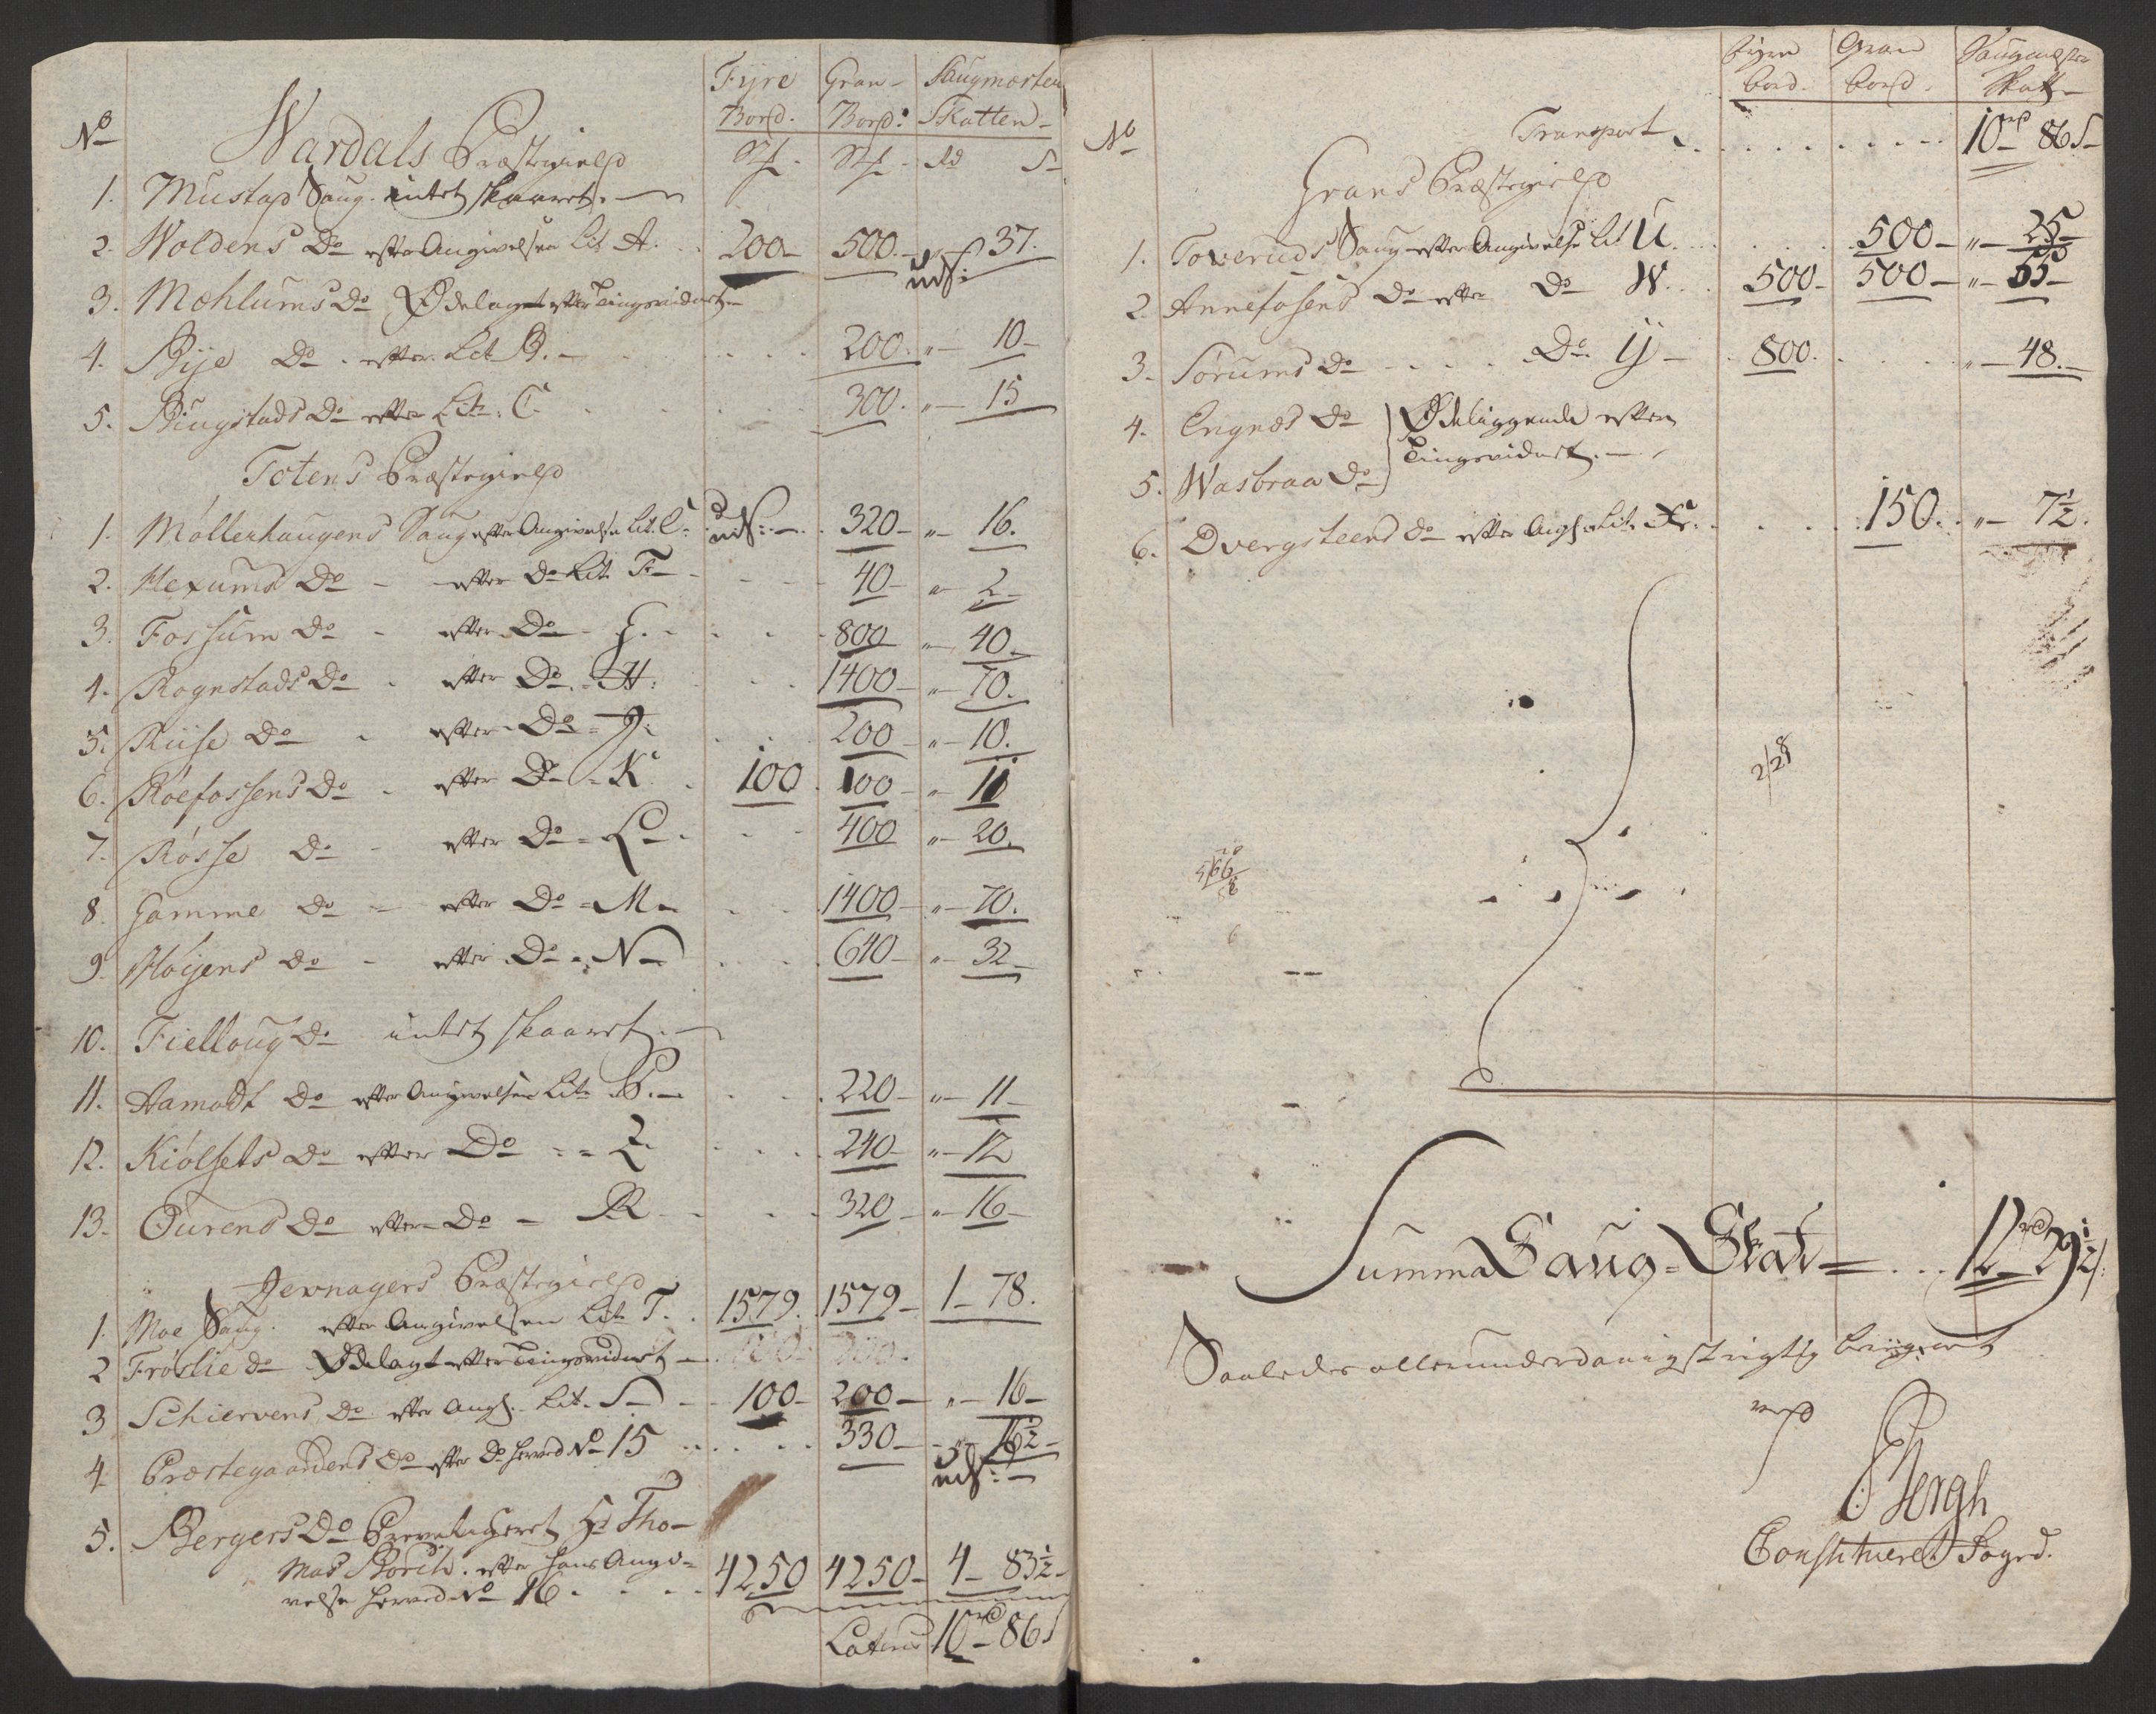 Fyre Gran- Saugmester
No Bord. Bord: Skatten-
Wardals Præstegield St. St. Rd S
1. Mustad Saug. intet skaaret.
2. Woldens Do efter Angivelsen Lit A. 200 500. 37.
uds:
3. Mæhlums Do Ødelagt efter Tingsvidnet
4. Bye Do efter Lit B. 200. " 10
5. Bingstads Do efter Lit: C. 300. " 15
Totens Præstegield
1. Møllerhaugens Saug efter Angivelse Lit. uds: 320 " 16.
2. Hexums Do efter Do Lit F 40 " 2
3. Fossum Do efter Do G. 800 " 40
4. Rognstads Do efter Do H: 1400 " 70.
5. Riise Do efter Do J. 200 " 10.
6. Røefossens Do efter Do K. 100 100 " 11
7. Røsse Do efter Do L 400 " 20.
8. Gamme Do efter Do M 1400 " 70.
9. Høijens Do efter Do N 640 " 32
10. Fielloug Do intet skaaret.
11. Aamodt Do efter Angivelsen Lit P. 220 " 11
12. Kiølsets Do efter Do Q 240 " 12
13. Ourens Do efter Do R 320 " 16
Jevnagers Præstegield
1. Moe Saug. efter Angivelsen Lit T. 1579. 1579 1 78.
2 Frøslie do Ødelagt efter Tingsvidnet
3 Schiervens Do efter Angs. Lit. S 100 200 " 16
4. Præstegaardens Do efter Do herved No 15 330 16½
uds:
5. Bergers Do Hr Tho-
mas Borch. efter hans Angi-
velse herved No 16 4250 4250 4 83½
Latus 10rd 86s
Fyre Gran Saugmester
bord. bord. Skatt
No Transport 10rd 86s
Grans Præstegield
1. Toveruds Saug efter Angivelse Lit U. 500 " 25
2. Annefosens Do efter Do W. 500 500 " 55
3. Sørums Do Do Y 800. " 48.
4. Engnæs Do Ødeliggende efter
Tingsvidnet.
5. Wasbraa Do
6. Dvergsteens do efter Angs. Lit. 150. " 7½.
2/28
Summa Saug-Skat 12rd 29½s.
Saaledes allerunderdanigst rigtig
ved
Bergh
Constitueret Fogd.